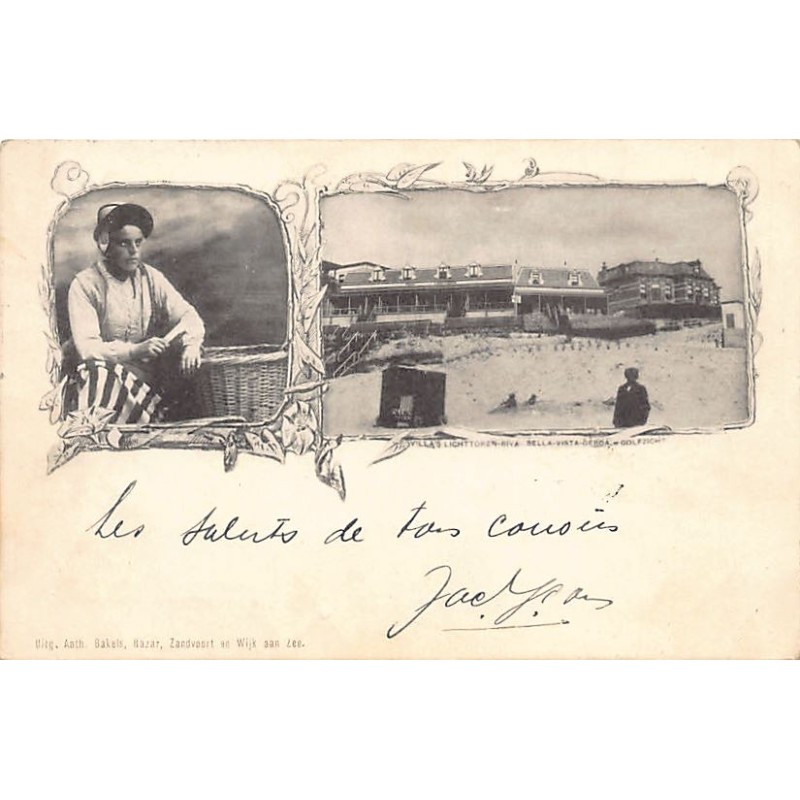 "VILLA'S LICHTTOREN-RIVA- BELLA-VISTA-GERDA, GOLFZICHT"
Les saluts de tous cousins
Jac
Uitg. Anth. Bakels, Bazar, Zandvoort en Wijk aan Zee.